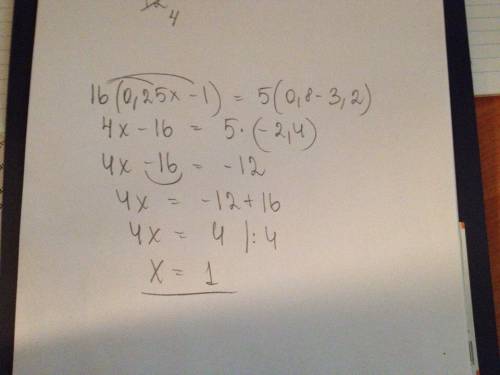 12
4
16(0,25x-1) = 5(0,8-3,2)
4x-16 = 5·(-2,4)
4x-16 = -12
4x = -12+16
4x = 4 |:4
x = 1